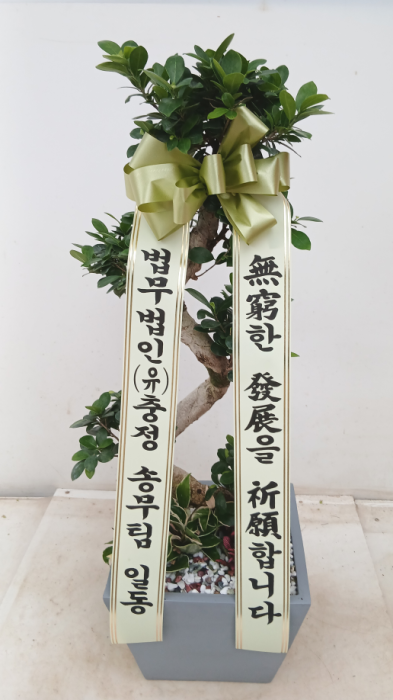 無窮한 發展을 祈願합니다
법무법인(유)충정 송무팀 일동